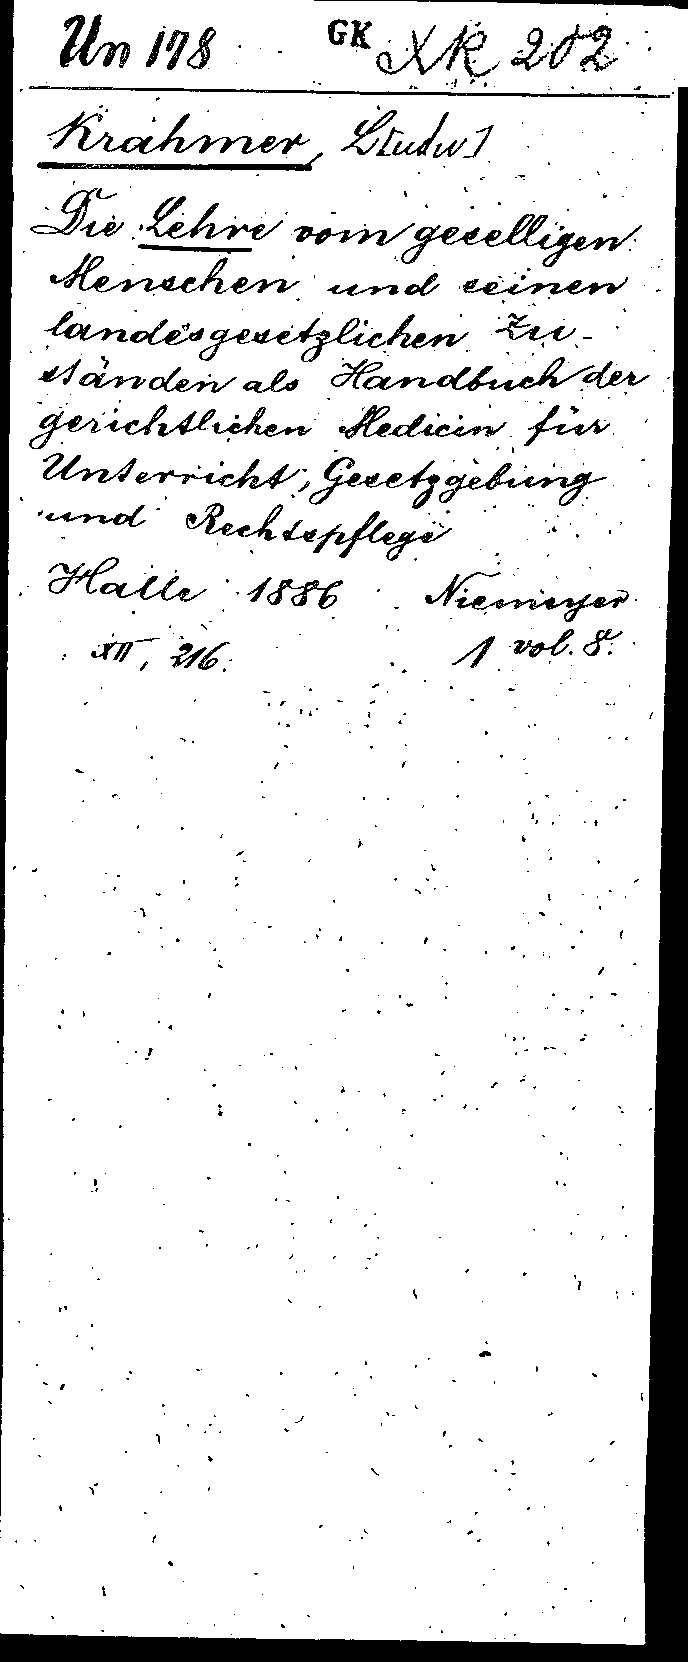 Un 178 GK XK 202
Krahmer, L[udw]
Die Lehre vom geselligen
Menschen und seinen
landesgesetzlichen Zu-
ständen als Handbuch der
gerichtlichen Medicin für
Unterricht, Gesetzgebung
und Rechtspflege
Halle 1886 Niemeyer
XII, 216. 1 vol. 8.